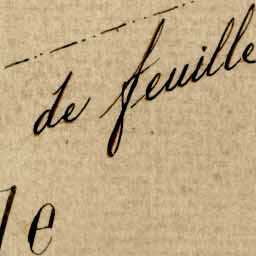 de feuille
le